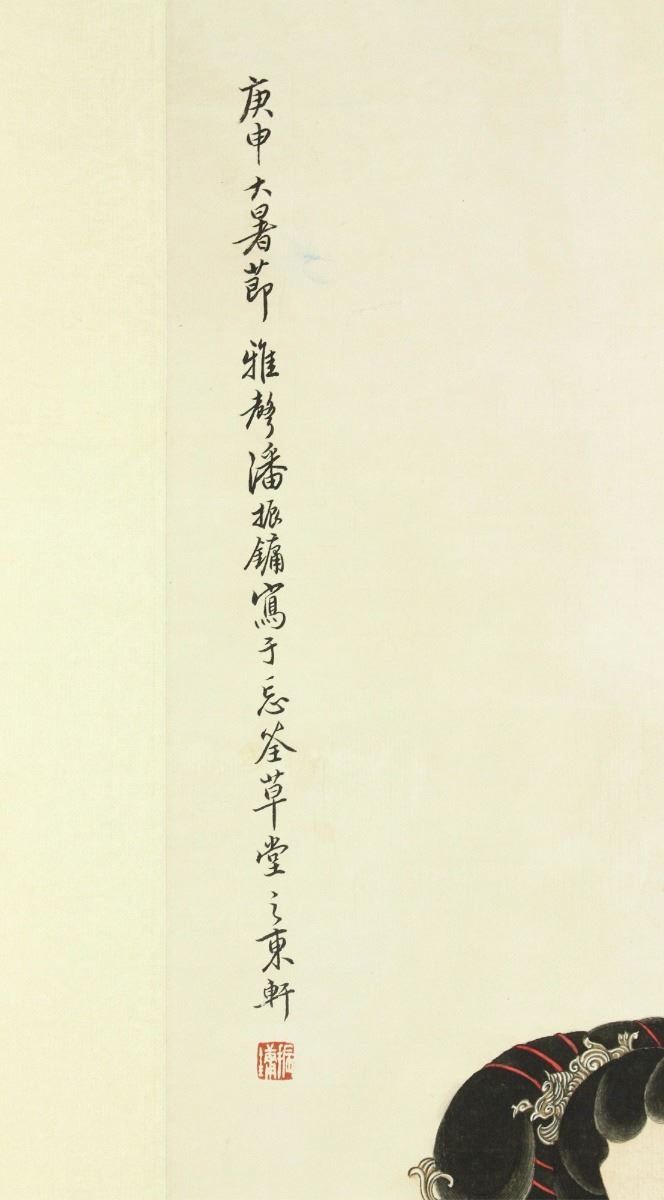 庚申大暑節雅聲潘振鏞寫于忘筌草堂之東軒